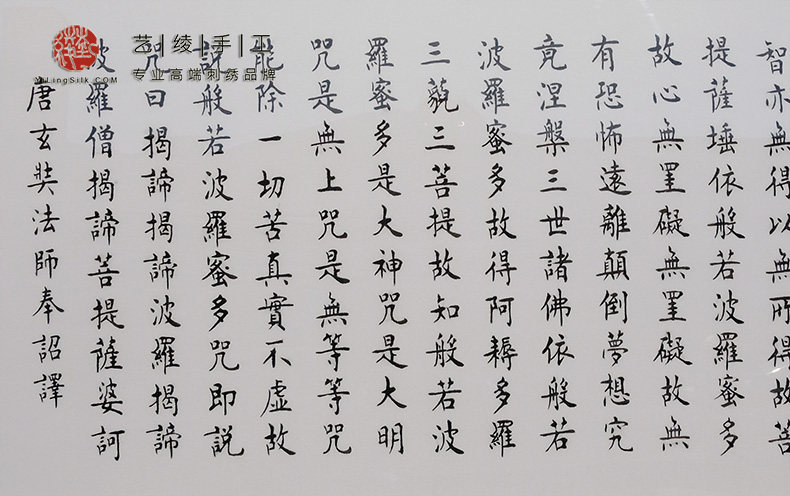 艺|绫|手|工
专业高端刺绣品牌
YiLingSilk.COM
智亦無得以無所得故菩
提薩埵依般若波羅蜜多
故心無罣礙無罣礙故無
有恐怖遠離顛倒夢想究
竟涅槃三世諸佛依般若
波羅蜜多故得阿耨多羅
三藐三菩提故知般若波
羅蜜多是大神咒是大明
咒是無上咒是無等等咒
能除一切苦真實不虛故
説般若波羅蜜多咒即説
咒曰揭諦揭諦波羅揭諦
波羅僧揭諦菩提薩婆訶
唐玄奘法師奉詔譯